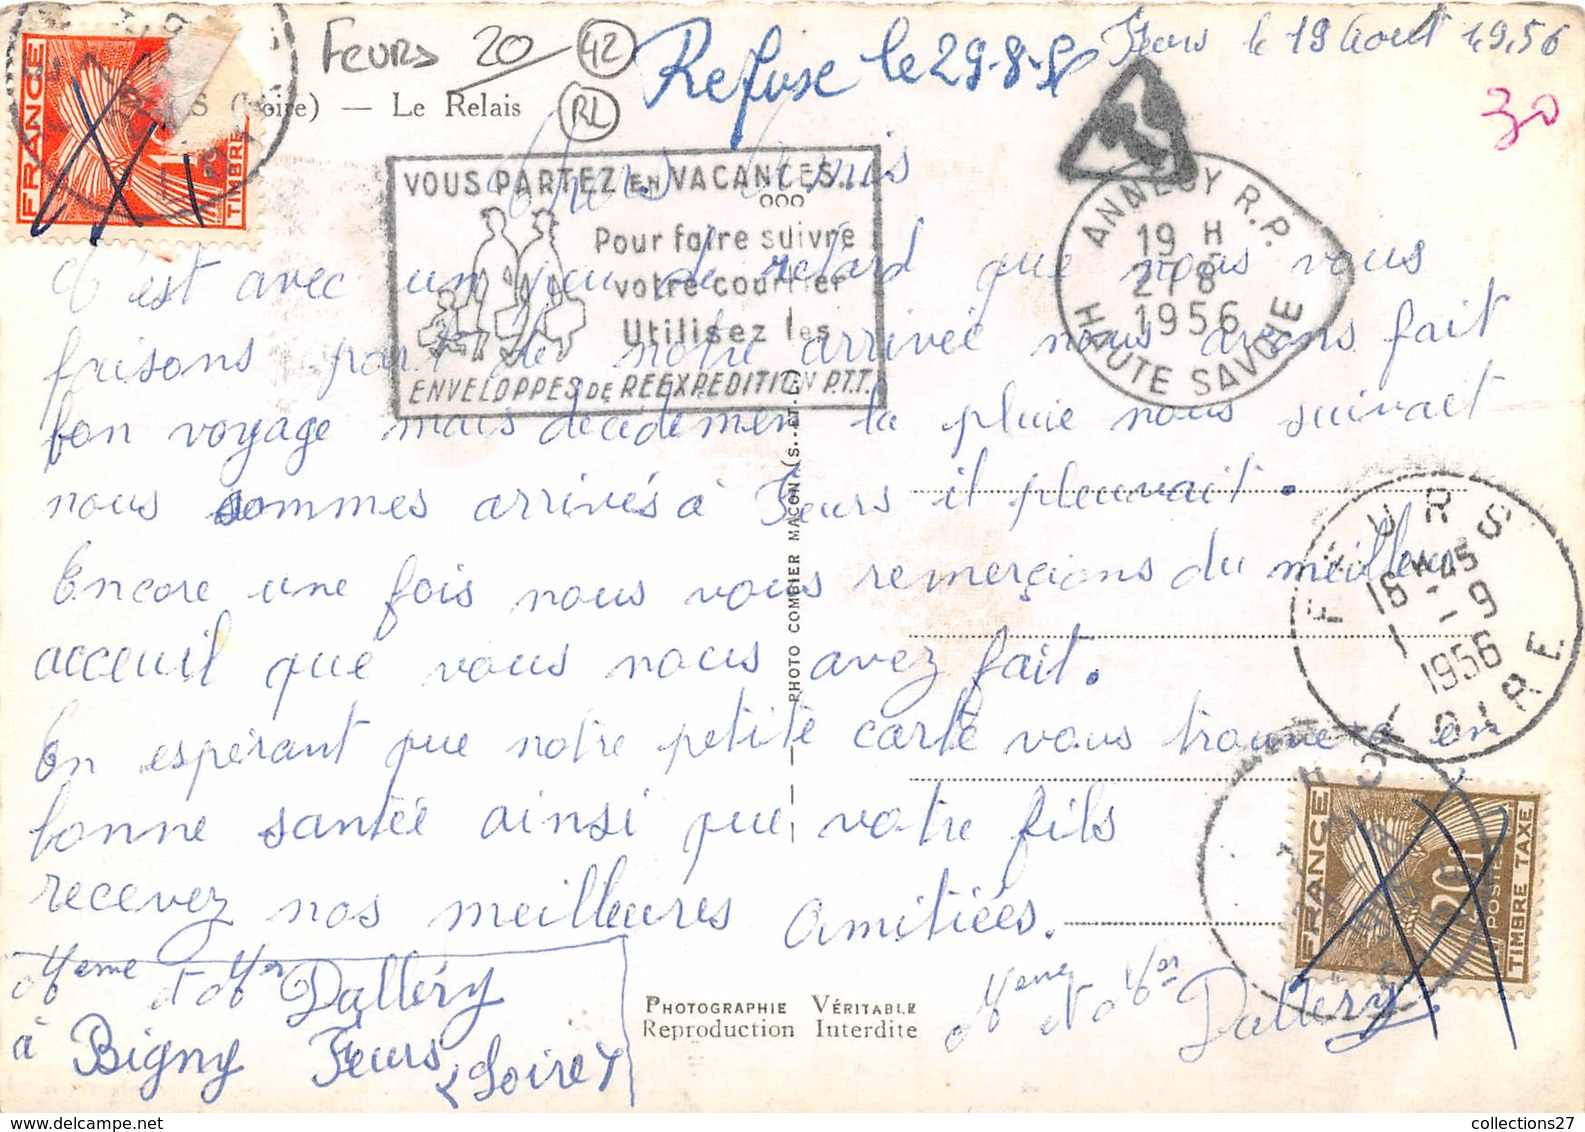 Feurs 20 42
RL
Refuse le 29-8-56
Feurs le 19 Aout 1956
30
S (Loire) — Le Relais
FRANCE
TIMBRE
VOUS PARTEZ EN VACANCES...
Pour faire suivre
votre courrier
Utilisez les
ENVELOPPES DE REEXPEDITION P.T.T.
ANNECY R.P.
19 H
27-8
1956
HAUTE SAVOIE
Chers Amis
C'est avec un peu de retard que nous vous
faisons part de notre arrivée nous avons fait
bon voyage mais décidemen la pluie nous suivait
nous sommes arrivés à Feurs il pleuvait.
Encore une fois nous vous remerçions du meilleur
acceuil que vous nous avez fait.
En espérant que notre petite carte vous trouvera en
bonne santée ainsi que votre fils
recevez nos meilleures amitiées.
Meme et Mr Dallery
Meme et Mr Dallery
à Bigny Feurs (Loire)
PHOTO COMBIER MACON (S.-ET-L.)
PHOTOGRAPHIE VÉRITABLE
Reproduction Interdite
FEURS
16 H 45
1 - 9
1956
LOIRE
FRANCE
20F
POSTES
TIMBRE TAXE
collections27